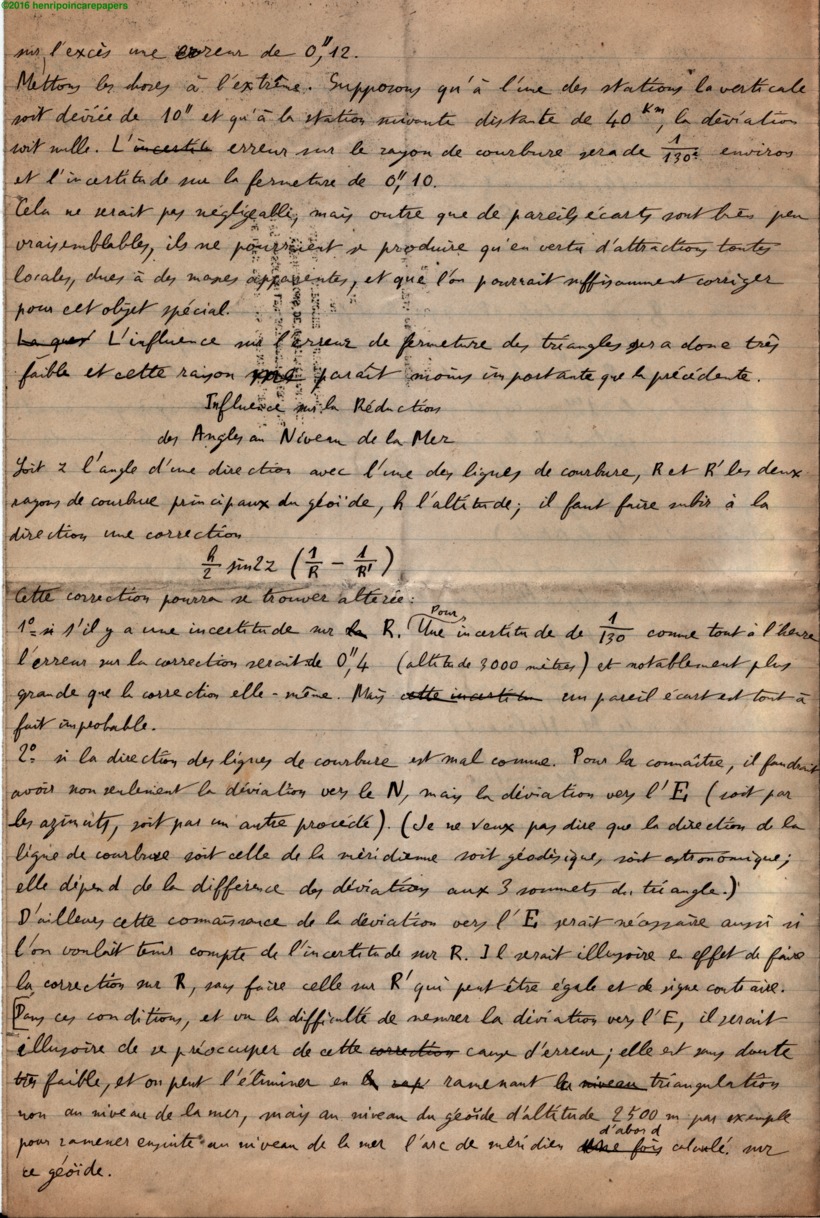 ©2016 henripoincarepapers
sur l'excès une erreur de 0",12.
Mettons les choses à l'extrême. Supposons qu'à l'une des stations la verticale
soit déviée de 10" et qu'à la station suivante distante de 40 Km, la déviation
soit nulle. L'incertit erreur sur le rayon de courbure sera de 1/130e environ
et l'incertitude sur la fermeture de 0",10.
Cela ne serait pas négligeable, mais outre que de pareils écarts sont très peu
vraisemblables, ils ne pourraient se produire qu'en vertu d'attractions toutes
locales, dues à des masses apparentes, et que l'on pourrait suffisamment corriger
pour cet objet spécial.
L'influence sur l'erreur de fermeture des triangles sera donc très
faible et cette raison paraît moins importante que la précédente.
Influence sur la Réduction
des Angles au Niveau de la Mer
Soit z l'angle d'une direction avec l'une des lignes de courbure, R et R' les deux
rayons de courbure principaux du géoïde, h l'altitude; il faut faire subir à la
direction une correction
h/2 sin 2z (1/R − 1/R')
Cette correction pourra se trouver altérée:
1º= si s'il y a une incertitude sur la R. Pour Une incertitude de 1/130 comme tout à l'heure
l'erreur sur la correction serait de 0",4 (altitude 3000 mètres) et notablement plus
grande que la correction elle-même. Mais cette incertitu un pareil écart est tout à
fait improbable.
2º= si la direction des lignes de courbure est mal connue. Pour la connaître, il faudrait
avoir non seulement la déviation vers le N, mais la déviation vers l'E (soit par
les azimuts, soit par un autre procédé). (Je ne veux pas dire que la direction de la
ligne de courbure soit celle de la méridienne soit géodésique, soit astronomique;
elle dépend de la différence des déviations aux 3 sommets du triangle.)
D'ailleurs cette connaissance de la déviation vers l'E serait nécessaire aussi si
l'on voulait tenir compte de l'incertitude sur R. Il serait illusoire en effet de faire
la correction sur R, sans faire celle sur R' qui peut être égale et de signe contraire.
[Dans ces conditions, et vu la difficulté de mesurer la déviation vers l'E, il serait
illusoire de se préoccuper de cette correction cause d'erreur; elle est sans doute
très faible, et on peut l'éliminer en ramenant la niveau triangulation
non au niveau de la mer, mais au niveau du géoïde d'altitude 2500 m par exemple
pour ramener ensuite au niveau de la mer l'arc de méridien d'abord Une fois calculé sur
ce géoïde.